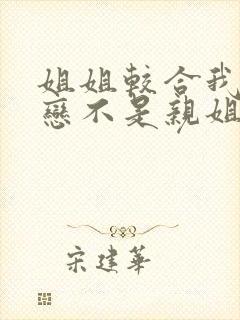 姐姐較合我
戀不是親姐
宋建華